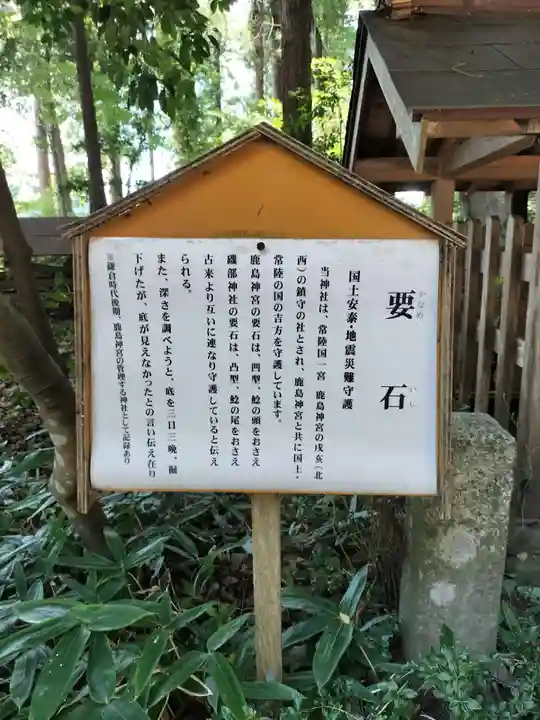 要石
かなめいし
国土安泰・地震災難守護
当神社は、常陸国一宮 鹿島神宮の戌亥(北
西)の鎮守の社とされ、鹿島神宮と共に国土・
常陸の国の吉方を守護しています。
鹿島神宮の要石は、凹型、鯰の頭をおさえ
磯部神社の要石は、凸型、鯰の尾をおさえ
古来より互いに連なり守護していると伝え
られる。
また、深さを調べようと、底を三日三晩、掘
下げたが、底が見えなかったとの言い伝え在り
※鎌倉時代後期、鹿島神宮の管理する神社として記録あり